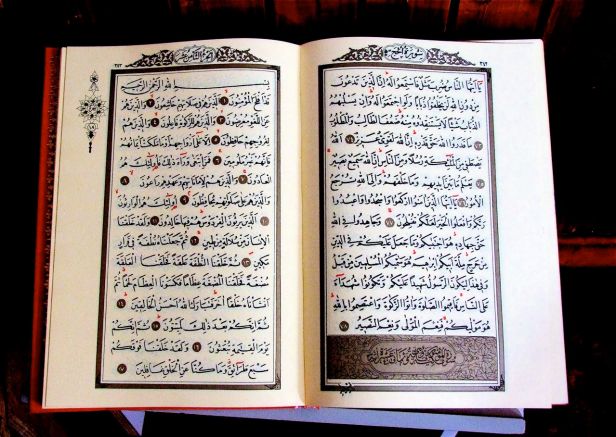 سورة الحج
يَا أَيُّهَا النَّاسُ ضُرِبَ مَثَلٌ فَاسْتَمِعُوا لَهُ إِنَّ الَّذِينَ تَدْعُونَ
مِنْ دُونِ اللَّهِ لَنْ يَخْلُقُوا ذُبَابًا وَلَوِ اجْتَمَعُوا لَهُ وَإِنْ يَسْلُبْهُمُ
الذُّبَابُ شَيْئًا لَا يَسْتَنْقِذُوهُ مِنْهُ ضَعُفَ الطَّالِبُ وَالْمَطْلُوبُ
٧٣ مَا قَدَرُوا اللَّهَ حَقَّ قَدْرِهِ إِنَّ اللَّهَ لَقَوِيٌّ عَزِيزٌ ٧٤ اللَّهُ
يَصْطَفِي مِنَ الْمَلَائِكَةِ رُسُلًا وَمِنَ النَّاسِ إِنَّ اللَّهَ سَمِيعٌ بَصِيرٌ
٧٥ يَعْلَمُ مَا بَيْنَ أَيْدِيهِمْ وَمَا خَلْفَهُمْ وَإِلَى اللَّهِ تُرْجَعُ
الْأُمُورُ ٧٦ يَا أَيُّهَا الَّذِينَ آمَنُوا ارْكَعُوا وَاسْجُدُوا وَاعْبُدُوا
رَبَّكُمْ وَافْعَلُوا الْخَيْرَ لَعَلَّكُمْ تُفْلِحُونَ ٧٧ وَجَاهِدُوا فِي اللَّهِ
حَقَّ جِهَادِهِ هُوَ اجْتَبَاكُمْ وَمَا جَعَلَ عَلَيْكُمْ فِي الدِّينِ
مِنْ حَرَجٍ مِلَّةَ أَبِيكُمْ إِبْرَاهِيمَ هُوَ سَمَّاكُمُ الْمُسْلِمِينَ مِنْ قَبْلُ
وَفِي هَذَا لِيَكُونَ الرَّسُولُ شَهِيدًا عَلَيْكُمْ وَتَكُونُوا شُهَدَاءَ
عَلَى النَّاسِ فَأَقِيمُوا الصَّلٰوةَ وَآتُوا الزَّكٰوةَ وَاعْتَصِمُوا بِاللَّهِ
هُوَ مَوْلٰيكُمْ فَنِعْمَ الْمَوْلَى وَنِعْمَ النَّصِيرُ ٧٨
الجزء الثامن عشر
بِسْمِ اللَّهِ الرَّحْمَنِ الرَّحِيمِ
قَدْ أَفْلَحَ الْمُؤْمِنُونَ ١ الَّذِينَ هُمْ فِي صَلَاتِهِمْ خَاشِعُونَ ٢ وَالَّذِينَ هُمْ
عَنِ اللَّغْوِ مُعْرِضُونَ ٣ وَالَّذِينَ هُمْ لِلزَّكٰوةِ فَاعِلُونَ ٤ وَالَّذِينَ هُمْ
لِفُرُوجِهِمْ حَافِظُونَ ٥ إِلَّا عَلَى أَزْوَاجِهِمْ أَوْ مَا مَلَكَتْ أَيْمَانُهُمْ
فَإِنَّهُمْ غَيْرُ مَلُومِينَ ٦ فَمَنِ ابْتَغَى وَرَاءَ ذَلِكَ فَأُولَئِكَ هُمُ
الْعَادُونَ ٧ وَالَّذِينَ هُمْ لِأَمَانَاتِهِمْ وَعَهْدِهِمْ رَاعُونَ ٨
وَالَّذِينَ هُمْ عَلَى صَلَوَاتِهِمْ يُحَافِظُونَ ٩ أُولَئِكَ هُمُ الْوَارِثُونَ
١٠ الَّذِينَ يَرِثُونَ الْفِرْدَوْسَ هُمْ فِيهَا خَالِدُونَ ١١ وَلَقَدْ خَلَقْنَا
الْإِنْسَانَ مِنْ سُلَالَةٍ مِنْ طِينٍ ١٢ ثُمَّ جَعَلْنَاهُ نُطْفَةً فِي قَرَارٍ
مَكِينٍ ١٣ ثُمَّ خَلَقْنَا النُّطْفَةَ عَلَقَةً فَخَلَقْنَا الْعَلَقَةَ
مُضْغَةً فَخَلَقْنَا الْمُضْغَةَ عِظَامًا فَكَسَوْنَا الْعِظَامَ لَحْمًا ثُمَّ
أَنْشَأْنَاهُ خَلْقًا آخَرَ فَتَبَارَكَ اللَّهُ أَحْسَنُ الْخَالِقِينَ ١٤
ثُمَّ إِنَّكُمْ بَعْدَ ذَلِكَ لَمَيِّتُونَ ١٥ ثُمَّ إِنَّكُمْ
يَوْمَ الْقِيٰمَةِ تُبْعَثُونَ ١٦ وَلَقَدْ خَلَقْنَا فَوْقَكُمْ
سَبْعَ طَرَائِقَ وَمَا كُنَّا عَنِ الْخَلْقِ غَافِلِينَ ١٧